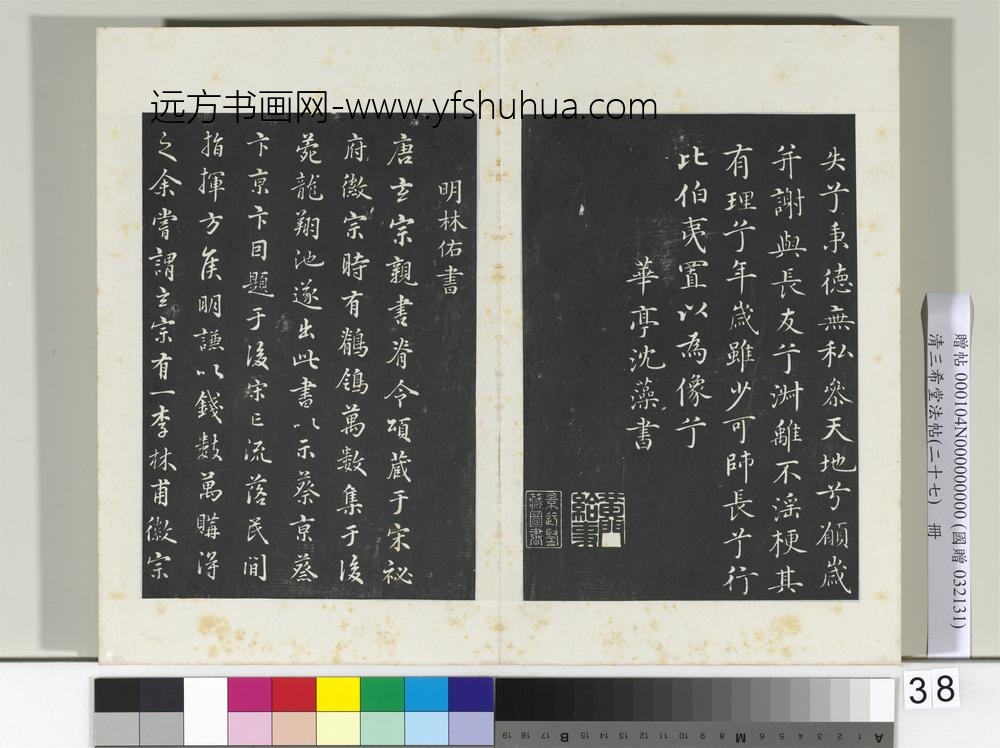 远方书画网-www.yfshuhua.com
失兮秉德無私參天地兮願歲
并謝與長友兮淑離不淫梗其
有理兮年歲雖少可師長兮行
比伯夷置以為像兮
華亭沈藻書
黃門
給事
景行
藏圖書
明林佑書
唐玄宗親書脊令頌藏于宋祕
府徽宗時有鶺鴒萬數集于後
苑龍翔池遂出此書以示蔡京蔡
卞京卞因題于後宋亡流落民間
指揮方侯明謙以錢數萬購得
之余嘗謂玄宗有一李林甫徽宗
贈帖 000104N000000000 (國贈 032131)
清三希堂法帖(二十七) 冊
38
A 1 2 3 4 5 6 M 8 9 10 11 12 13 14 15 B 17 18 19